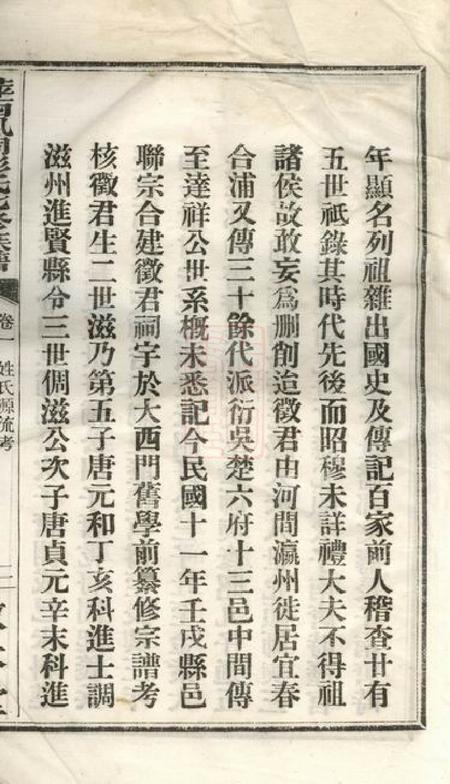 年顯名列祖雜出國史及傳記百家前人稽查廿有
五世祗錄其時代先後而昭穆未詳禮大夫不得祖
諸侯故敢妄爲删創迨徵君由河間瀛州徙居宜春
合浦又傳三十餘代派衍吳楚六府十三邑中間傳
至達祥公世系概未悉記今民國十一年壬戌縣邑
聯宗合建徵君祠宇於大西門舊學前纂修宗譜考
核徵君生二世滋乃第五子唐元和丁亥科進士調
滋州進賢縣令三世倜滋公次子唐貞元辛未科進
卷一
姓氏源流考
二